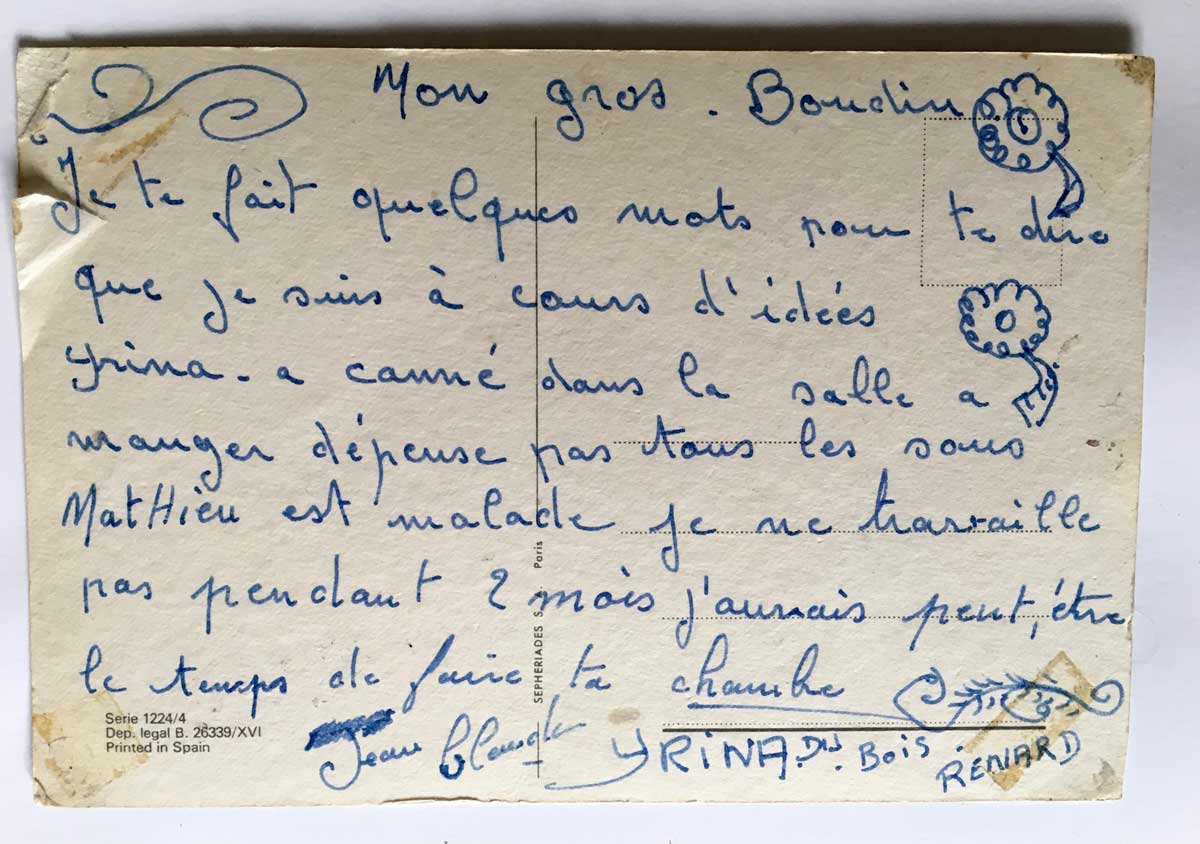 Mon gros. Boudin
Je te fait quelques mots pour te dire
que je suis à cours d'idées
Yrina - a canné dans la salle a
manger dépense pas tous les sous
MatHieu est malade je ne travaille
pas pendant 2 mois j'aurais peut, être
le temps de faire ta chambe
Serie 1224/4
Dep. legal B. 26339/XVI
Printed in Spain
SEPHERIADES S. Paris
Jean Claude YRINA. DU. BOIS. RENARD